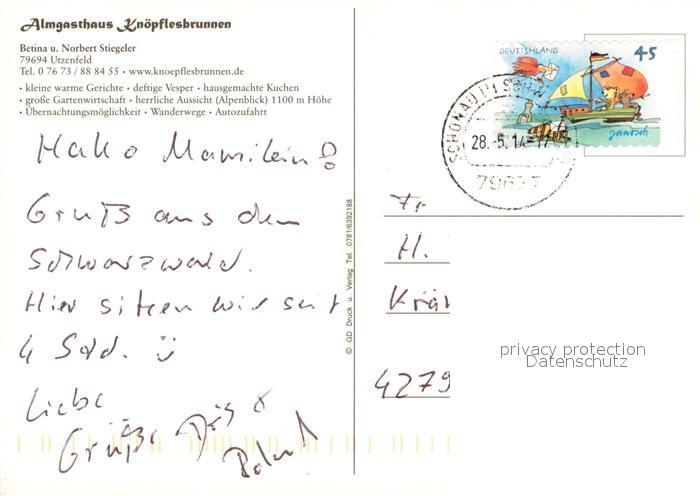 Almgasthaus Knöpflesbrunnen
Betina u. Norbert Stiegeler
79694 Utzenfeld
Tel. 0 76 73 / 88 84 55 · www.knoepflesbrunnen.de
· kleine warme Gerichte · deftige Vesper · hausgemachte Kuchen
· große Gartenwirtschaft · herrliche Aussicht (Alpenblick) 1100 m Höhe
· Übernachtungsmöglichkeit · Wanderwege · Autozufahrt
Hallo Mamilein!
Gruß aus dem
Schwarzwald.
Hier sitzen wir seit
4 Std.
Liebe
Grüße
© GD Druck u. Verlag Tel. 0781/6392188
DEUTSCHLAND
45
janosch
28.-5.14-17
Fr.
H.
Krä
4279
privacy protection
Datenschutz